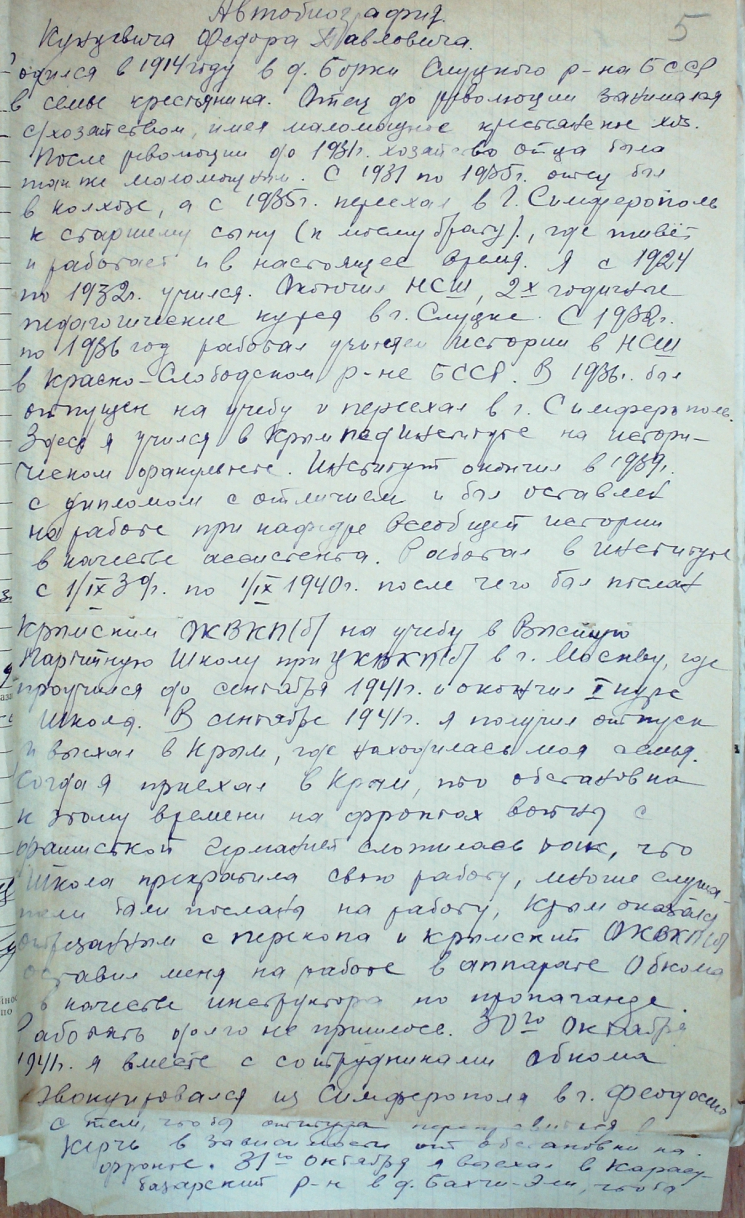 Автобиография.
5
Кунцевича Федора Павловича.
одился в 1914 году в д. Борки Слуцкого р-на БССР
в семье крестьянина. Отец до революции занимался
с/хозяйством, имея маломощное крестьянское хоз.
После революции до 1931г. хозяйство отца было
также маломощным. С 1931 по 1935г. отец был
в колхозе, а с 1935г. переехал в г. Симферополь
к старшему сыну (к моему брату), где живёт
и работает и в настоящее время. Я с 1924
по 1932г. учился. Окончил НСШ, 2х годичные
педагогические курсы в г. Слуцке. С 1932г.
по 1936 год работал учителем истории в НСШ
в Красно-Слободском р-не БССР. В 1936г. был
отпущен на учебу и переехал в г. Симферополь.
Здесь я учился в Крымпединституте на истори-
ческом факультете. Институт окончил в 1939г.
с дипломом с отличием и был оставлен
на работе при кафедре Всеобщей истории
в качестве ассистента. Работал в институте
с 1/IX 39г. по 1/IX 1940г. после чего был послан
Крымским ОКВКП(б) на учебу в Высшую
Партийную Школу при ЦКВКП(б) в г. Москву, где
проучился до сентября 1941г. и окончил I курс
Школы. В сентябре 1941г. я получил отпуск
и выехал в Крым, где находилась моя семья.
Когда я приехал в Крым, то обстановка
к этому времени на фронтах войны с
фашисткой Германией сложилась так, что
Школа прекратила свою работу, многие слуша-
тели были посланы на работу, Крым оказался
отрезанным с Перекопа и Крымский ОКВКП(б)
оставил меня на работе в аппарате Обкома
в качестве инструктора по пропаганде.
Работать долго не пришлось. 30го Октября
1941г. я вместе с сотрудниками Обкома
эвакуировался из Симферополя в г. Феодосию
с тем, чтобы оттуда переправиться в
Керчь в зависимости от обстановки на
фронте. 31го октября я выехал в Карасу-
базарский р-н в д. Бахчи-Эли, чтобы